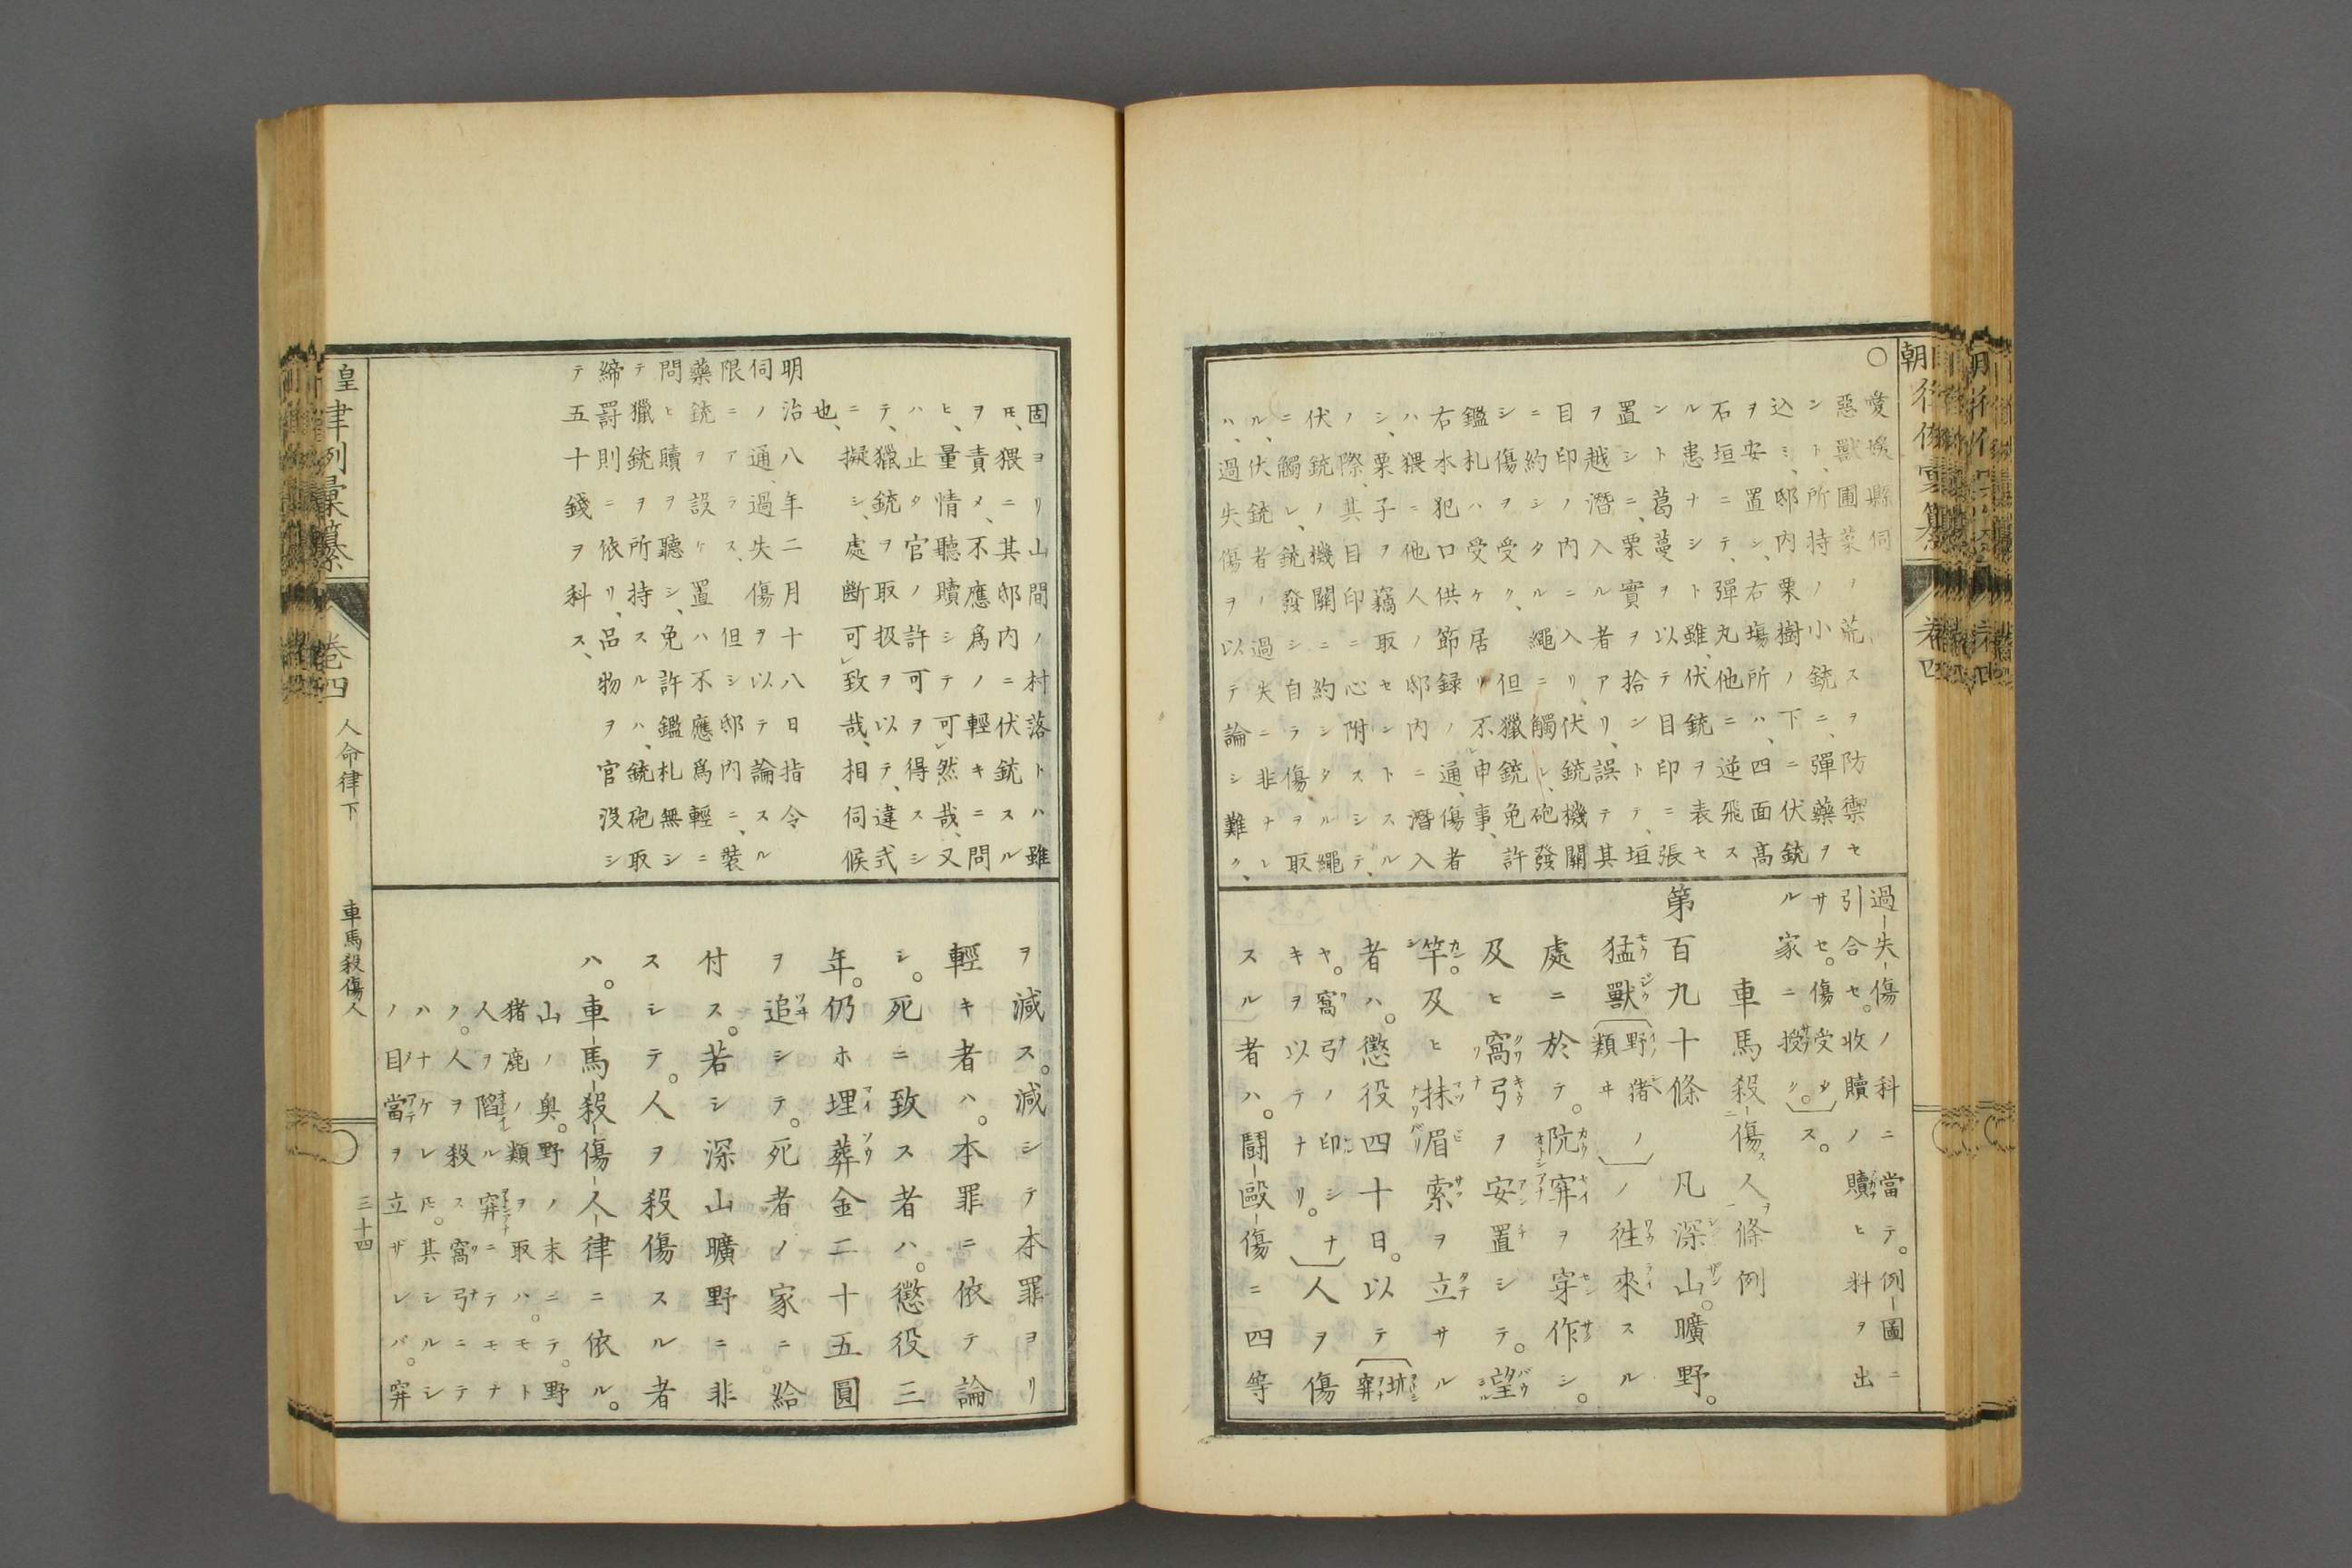 ○愛媛縣伺
惡獸圃菜ノ荒スヲ防禦セ
ント、所持ノ小銃ニ、彈藥ヲ
込ミ、邸内栗樹ノ下ニ伏銃
ヲ安置シ、右塲所ハ、四面髙
石垣ニテ、彈丸他ニ逆飛ス
ル患ナシト雖、伏銃ヲ表セ
ント葛蔓ヲ以テ目印ニ張
置シニ、栗實ヲ拾ントテ、垣
ヲ越潛入ル者アリ、誤テ其
目印ノ内ニ入リ、伏銃機關
ニ約シタル繩ニ觸レ砲發
シ傷ヲ受ク、但獵銃免許
鑑札ハ受ケ居リ不申事、
右本犯口供節録ノ通傷者
ハ猥ニ他人ノ邸内ニ潛入
シ、栗子ヲ竊取セントスル
ノ際、其目印ニ心附スシテ、
伏銃ノ機關ニ約シタル繩
ニ觸レ、銃發シ自ラ傷ヲ取
ル、伏銃者ノ過失ニ非ナレ
ハ、過失傷ヲ以テ論シ難ク、
過失傷ノ科ニ當テ。例圖ニ
引合セ。收贖ノ贖ヒ料ヲ出
サセ。傷受タ
ル家ニ授ク。ス。
車馬殺傷人條例
第百九十條 凡深山。曠野。
猛獸野猪ノ類ヰノ徃來スル
處ニ於テ。阬穽ヲ穿作シ。
及ヒ窩弓ヲ安置シテ。望
竿。及ヒ抹眉索ヲ立サル
者ハ。懲役四十日。以テ坑穽
ヤ。窩弓ノ印シナ
キヲ以テナリ。人ヲ傷
スル者ハ。闘毆傷ニ四等
固ヨリ山間ノ村落トハ雖
𪜈、猥ニ其邸内ニ伏銃スル
ヲ責メ、不應爲ノ輕キニ問
ヒ、量情聽贖シテ可然哉、又
ハ止タ官ノ許可ヲ得スシ
テ、獵銃ヲ取扱ヲ以テ、違式
ニ擬シ、處斷可致哉、相伺候
也、
明治八年二月十八日指令
伺ノ通、過失傷ヲ以テ論スル
限ニアラス、但シ邸内ニ、裝
藥銃ヲ設ケ置ハ不應爲輕ニ
問ヒ贖ヲ聽シ、免許鑑札無シ
テ獵銃ヲ所持スルハ、銃砲取
締罸則ニ依リ、品物ヲ官沒シ
テ五十錢ヲ科ス、
ヲ減ス。減シテ本罪ヨリ
輕キ者ハ。本罪ニ依テ論
シ。死ニ致ス者ハ。懲役三
年。仍ホ埋葬金二十五圓
ヲ追シテ。死者ノ家ニ給
付ス。若シ深山曠野ニ非
スシテ。人ヲ殺傷スル者
ハ。車馬殺傷人律ニ依ル。
山ノ奥。野ノ末ニテ。野
猪鹿ノ類ヲ取ハ。モト
人ヲ陷ル穽ニテモナ
ク。人ヲ殺ス窩弓ニテ
ハナケレ𪜈。其シルシ
ノ目當ヲ立ザレバ。穽
皇律例彙纂 卷四 人命律下 車馬殺傷人 三十四